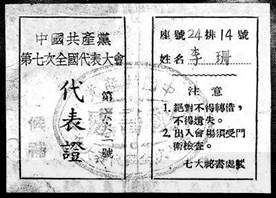 中國共產黨
第七次全國代表大會
代表證
第六一號
座號24排14號
姓名李珊
注意
1.絕對不得轉借，
不得遺失。
2.出入會場須受門
衛檢查。
七大祕書處製